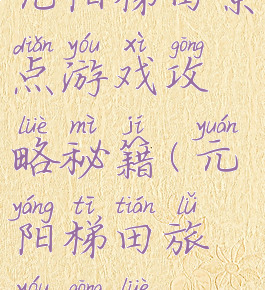 元阳梯田景
diǎn yóu xì gōng
点游戏攻
lüè mì jí yuán
略秘籍(元
yáng tī tián lǚ
阳梯田旅
yóu gōng lüè